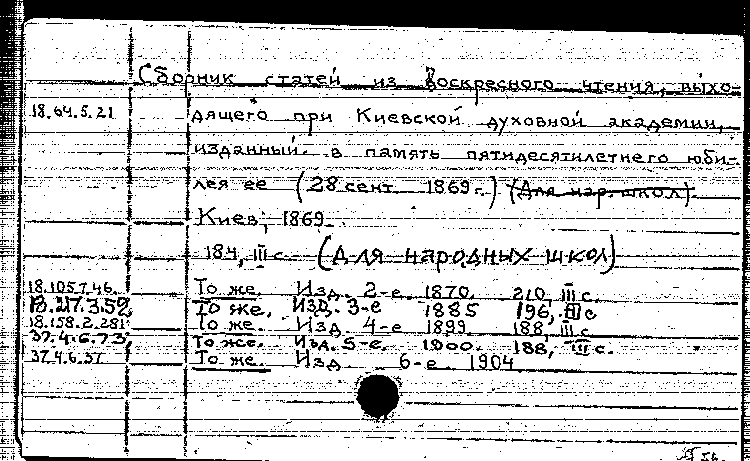 Сборник статей из Воскресного чтения, выхо-
18.64.5.21 дящего при Киевской духовной академии,
изданный в память пятидесятилетнего юби-
лея ее (28 сент. 1869 г.) (Для нар. школ).
Киев, 1869.
184, III с. (Для народных школ)
18.105.7.46. То же. Изд. 2-е. 1870. 210, III с.
18.217.3.52 То же. Изд. 3-е 1885 196, III с
18.158.2.281 То же. Изд. 4-е 1899 188, III с.
37.4.6.73 То же. Изд. 5-е. 1900. 188, III с.
37.4.6.37 То же. Изд 6-е. 1904